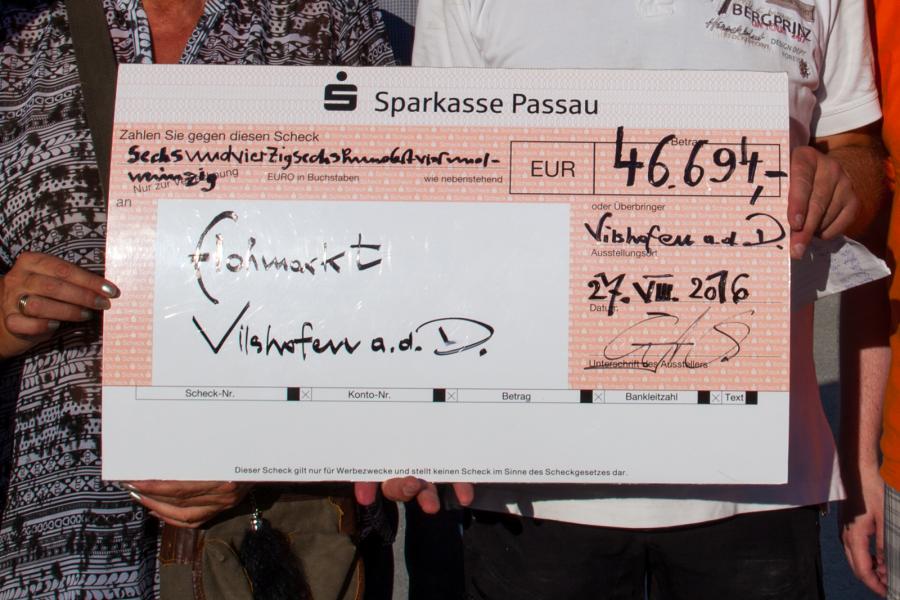 BERGPRINZ
DESIGN DEPT
Sparkasse Passau
Zahlen Sie gegen diesen Scheck
Sechsundvierzigsechshundertvierund-
neunzig
Nur zur Verrechnung
EURO in Buchstaben
wie nebenstehend
EUR
Betrag
46.694,-
an
oder Überbringer
Flohmarkt
Vilshofen a.d. D.
Vilshofen a.d. D.
Ausstellungsort
27. VIII. 2016
Datum
Unterschrift des Ausstellers
Scheck-Nr. Konto-Nr. Betrag Bankleitzahl Text
Dieser Scheck gilt nur für Werbezwecke und stellt keinen Scheck im Sinne des Scheckgesetzes dar.